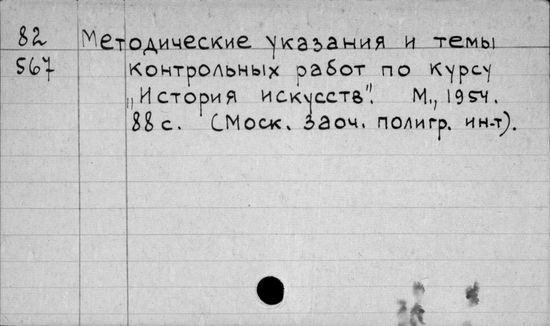 82 Методические указания и темы
567 контрольных работ по курсу
„История искусств". М., 1954.
88 с. (Моск. заоч. полигр. ин-т).